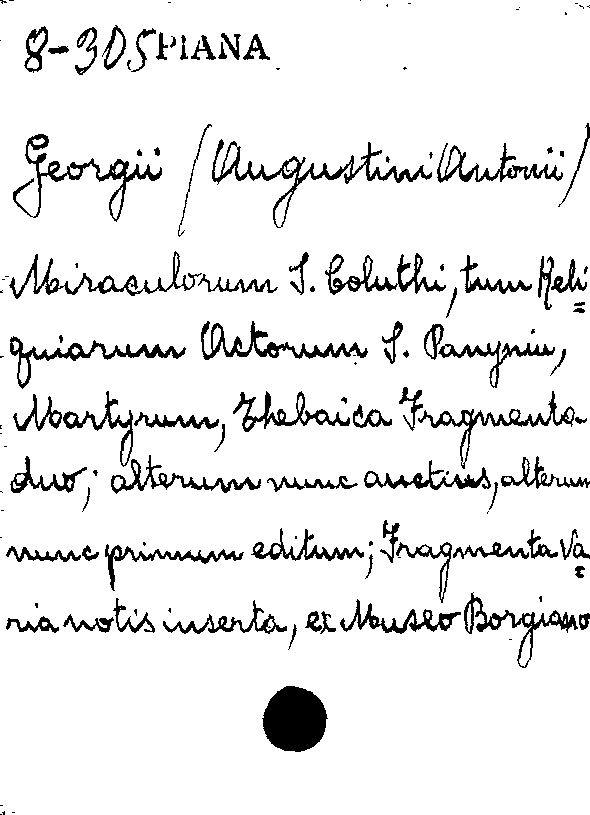 8-305 PIANA
Georgii (Augustini Antonii)
Miraculorum S. Coluthi, tum Reli=
quiarum Actorum S. Panyniu,
Martyrum, Thebaica Fragmenta
duo; alterum nunc auctius, alterum
nunc primum editum; Fragmenta Va=
ria notis inserta, ex Museo Borgiano